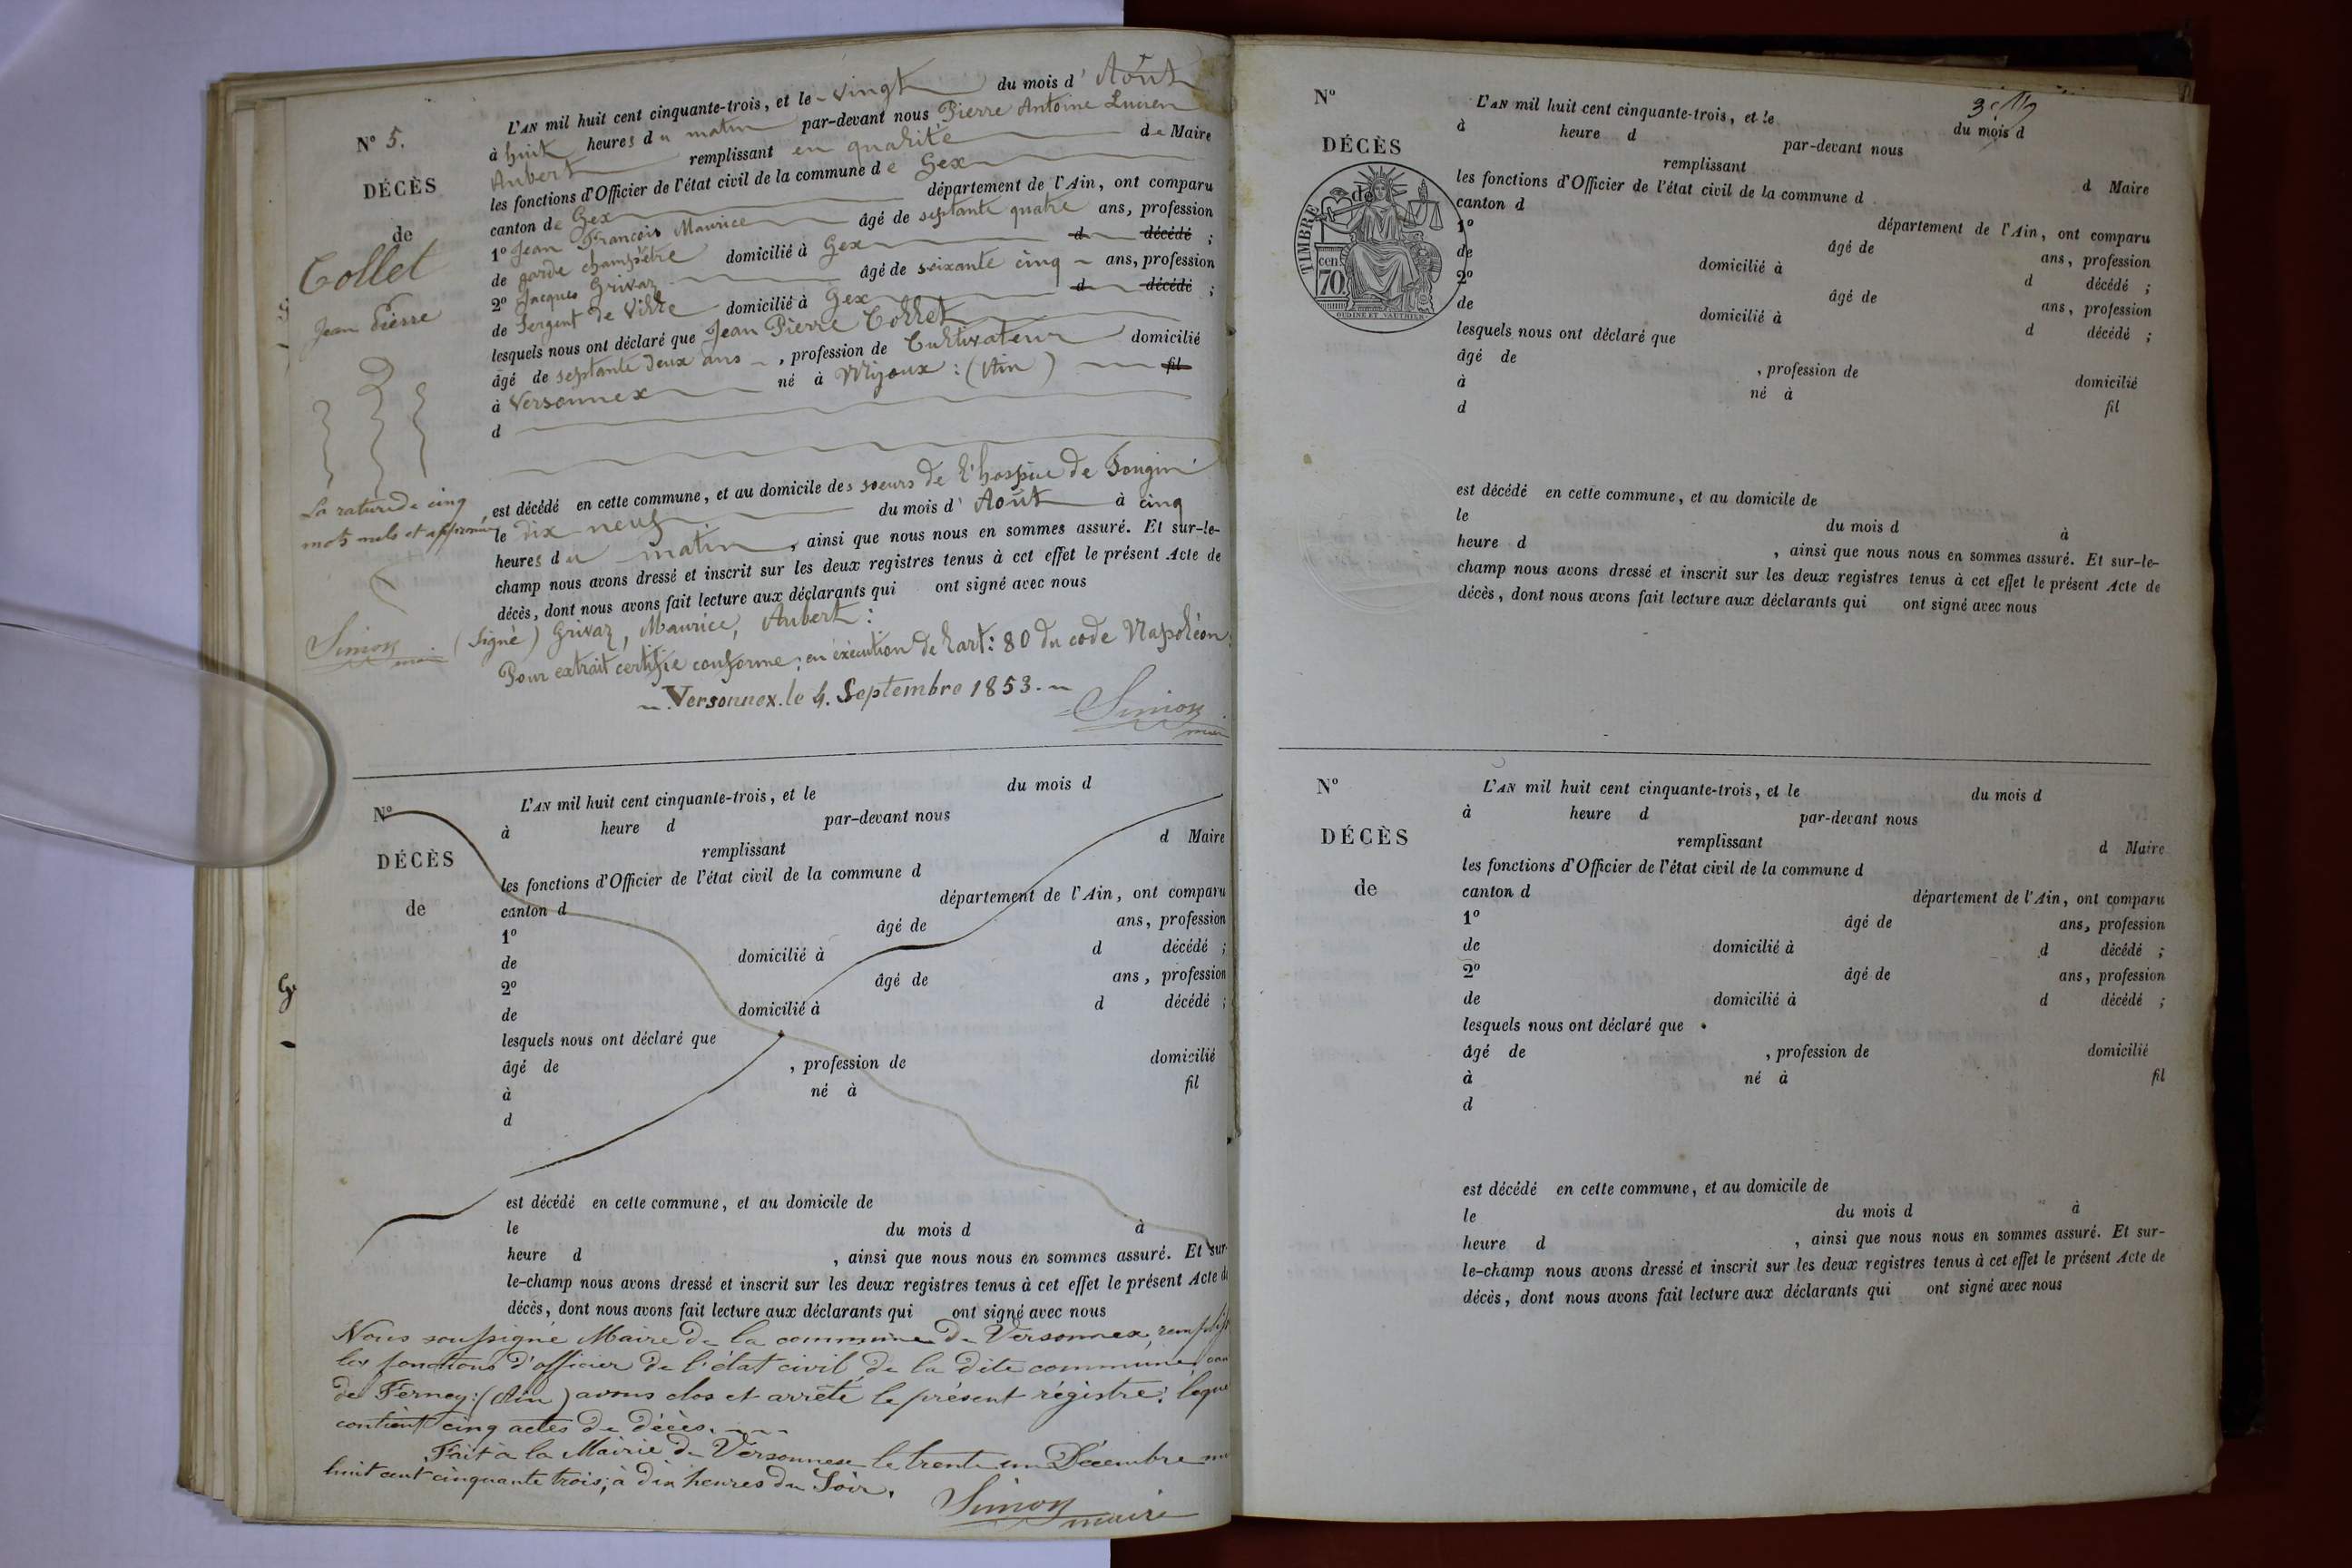 N° 5.
DÉCÈS
de
Collet
Jean Pierre
La rature de cinq
mots nuls et approuvée
Simon
maire
L'AN mil huit cent cinquante-trois, et le vingt du mois d'Août
à huit heures du matin par-devant nous Pierre Antoine Lucien
Aubert remplissant en qualité de Maire
les fonctions d'Officier de l'état civil de la commune de Gex
canton de Gex département de l'Ain, ont comparu
1° Jean François Maurice âgé de septante quatre ans, profession
de garde champêtre domicilié à Gex d décédé ;
2° Jacques Grivaz âgé de soixante cinq ans, profession
de Sergent de Ville domicilié à Gex d décédé ;
lesquels nous ont déclaré que Jean Pierre Collet
âgé de septante deux ans, profession de Cultivateur domicilié
à Versonnex né à Mijoux : (Ain) fil
d
est décédé en cette commune, et au domicile des soeurs de l'hospice de Tougin
le dix neuf du mois d'Août à cinq
heures du matin, ainsi que nous nous en sommes assuré. Et sur-le-
champ nous avons dressé et inscrit sur les deux registres tenus à cet effet le présent Acte de
décès, dont nous avons fait lecture aux déclarants qui ont signé avec nous
(Signé) Grivaz, Maurice, Aubert :
Pour extrait certifié conforme, en exécution de l'art: 80 du code Napoléon:
Versonnex, le 4. Septembre 1853.
Simon
maire
N°
DÉCÈS
de
L'AN mil huit cent cinquante-trois, et le du mois d
à heure d par-devant nous
remplissant d Maire
les fonctions d'Officier de l'état civil de la commune d
canton d département de l'Ain, ont comparu
1° âgé de ans, profession
de domicilié à d décédé ;
2° âgé de ans, profession
de domicilié à d décédé ;
lesquels nous ont déclaré que
âgé de , profession de domicilié
à né à fil
d
est décédé en cette commune, et au domicile de
le du mois d à
heure d , ainsi que nous nous en sommes assuré. Et sur-
le-champ nous avons dressé et inscrit sur les deux registres tenus à cet effet le présent Acte de
décès, dont nous avons fait lecture aux déclarants qui ont signé avec nous
Nous soussigné Maire de la commune de Versonnex,
les fonctions d'officier de l'état civil, de la dite commune,
de Ferney: (Ain) avons clos et arrêté le présent régistre; leque
contient cinq actes de décès.
Fait à la Mairie de Versonnex le trente un Décembre
huit cent cinquante trois, à dix heures du Soir.
Simon
maire
N°
DÉCÈS
de
TIMBRE
cen.
70
OUDINÉ ET VAUTHIER
L'AN mil huit cent cinquante-trois, et le du mois d
à heure d par-devant nous
remplissant d Maire
les fonctions d'Officier de l'état civil de la commune d
canton d département de l'Ain, ont comparu
1° âgé de ans, profession
de domicilié à d décédé ;
2° âgé de ans, profession
de domicilié à d décédé ;
lesquels nous ont déclaré que
âgé de , profession de domicilié
à né à fil
d
est décédé en cette commune, et au domicile de
le du mois d à
heure d , ainsi que nous nous en sommes assuré. Et sur-le-
champ nous avons dressé et inscrit sur les deux registres tenus à cet effet le présent Acte de
décès, dont nous avons fait lecture aux déclarants qui ont signé avec nous
N°
DÉCÈS
de
L'AN mil huit cent cinquante-trois, et le du mois d
à heure d par-devant nous
remplissant d Maire
les fonctions d'Officier de l'état civil de la commune d
canton d département de l'Ain, ont comparu
1° âgé de ans, profession
de domicilié à d décédé ;
2° âgé de ans, profession
de domicilié à d décédé ;
lesquels nous ont déclaré que
âgé de , profession de domicilié
à né à fil
d
est décédé en cette commune, et au domicile de
le du mois d à
heure d , ainsi que nous nous en sommes assuré. Et sur-
le-champ nous avons dressé et inscrit sur les deux registres tenus à cet effet le présent Acte de
décès, dont nous avons fait lecture aux déclarants qui ont signé avec nous